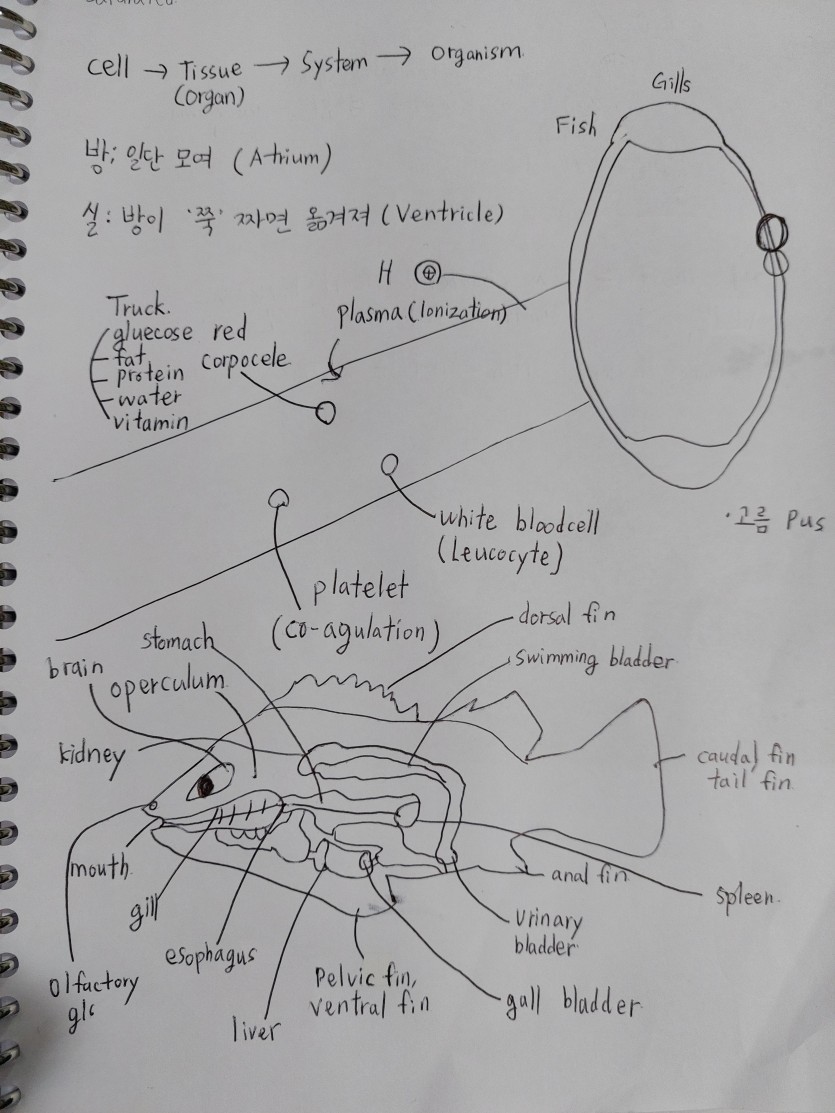 cell → Tissue → System → Organism
(Organ)
Gills
Fish
방; 일단 모여 (Atrium)
실: 방이 '쭉' 짜면 옮겨져 (Ventricle)
H ⊕
plasma (Ionization)
Truck.
gluecose
fat
protein
water
vitamin
red
corpocele
white bloodcell
(Leucocyte)
· 고름 Pus
platelet
(co-agulation)
dorsal fin
swimming bladder
stomach
brain
operculum
kidney
caudal fin
tail fin
mouth
gill
esophagus
olfactory
liver
Pelvic fin,
ventral fin
anal fin
spleen
Urinary
bladder
gall bladder